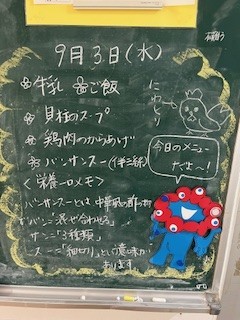 9月3日(水)
牛乳 ご飯
貝柱のスープ
鶏肉のからあげ
バンサンスー
にわとり
今日のメニュー
だよ〜!
<栄養一口メモ>
バンサンスーとは、中華風の酢のもの
バン=「混ぜ合わせる」
サン=「3種類」
スー=「細切り」という意味が
あります。